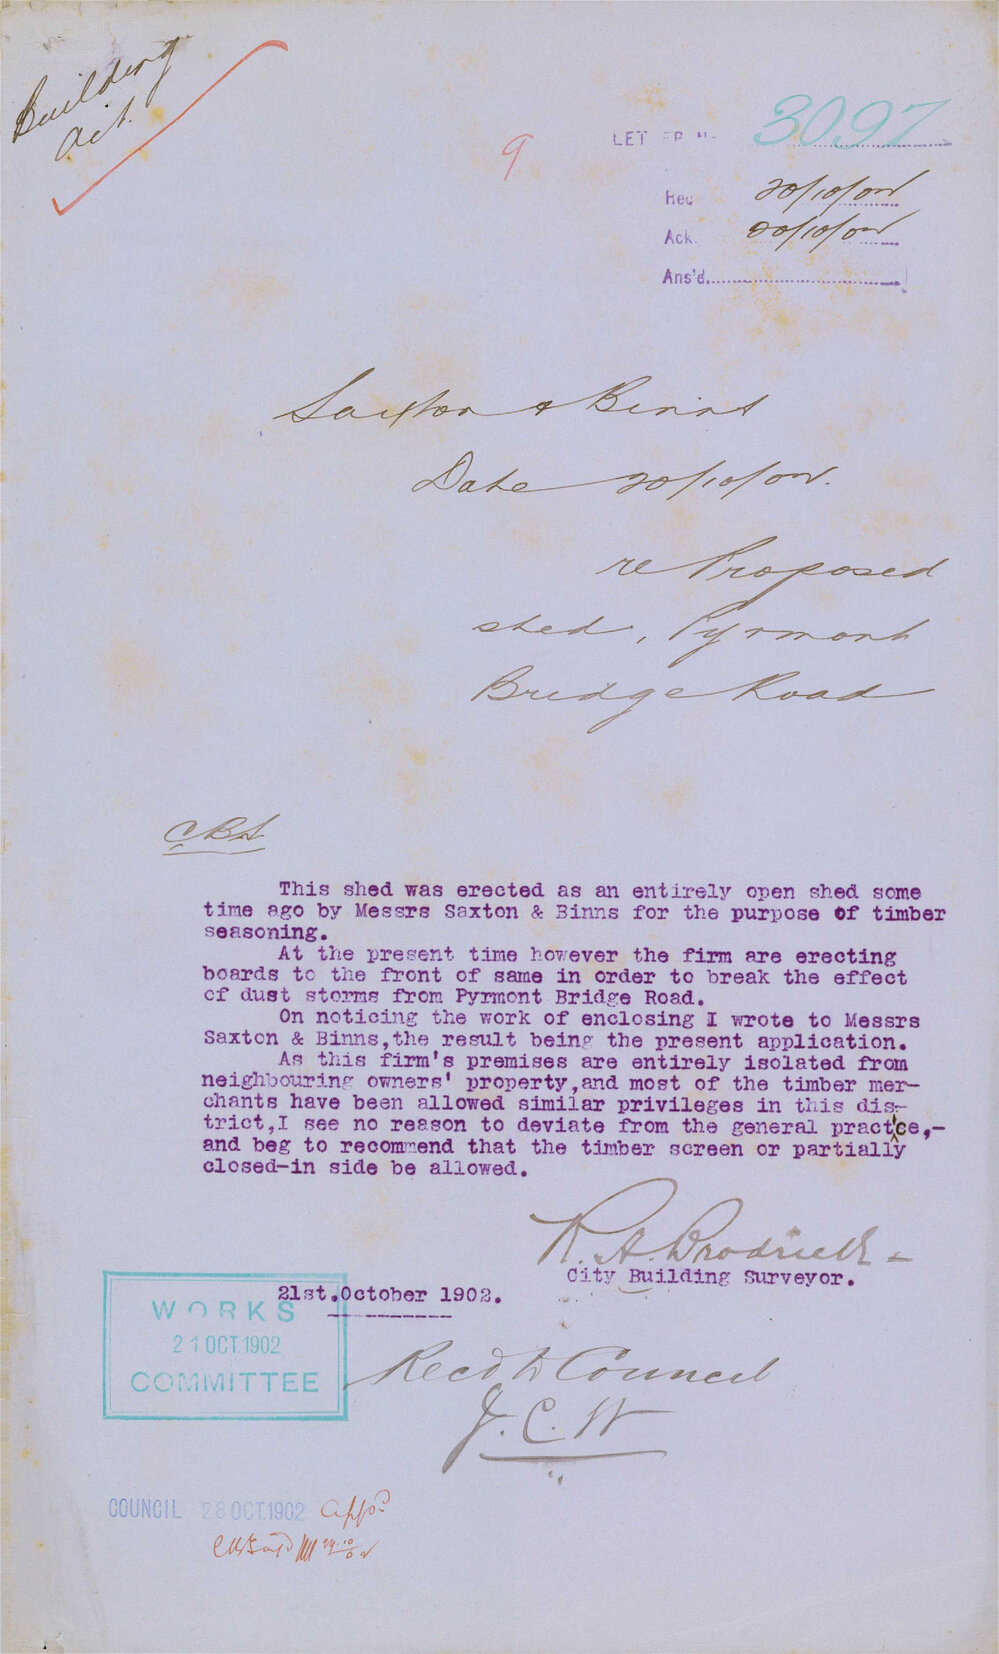 Building
Act.
9
LETTER No 3097
Rec 20/10/02
Ack. 20/10/02
Ans'd.
Saxton & Binns
Date 20/10/02.
re Proposed
shed, Pyrmont
Bridge Road
CBS
This shed was erected as an entirely open shed some
time ago by Messrs Saxton & Binns for the purpose of timber
seasoning.
At the present time however the firm are erecting
boards to the front of same in order to break the effect
of dust storms from Pyrmont Bridge Road.
On noticing the work of enclosing I wrote to Messrs
Saxton & Binns,the result being the present application.
As this firm's premises are entirely isolated from
neighbouring owners' property,and most of the timber mer-
chants have been allowed similar privileges in this dis-
trict,I see no reason to deviate from the general practice,-
and beg to recommend that the timber screen or partially
closed-in side be allowed.
R. A. Brodrick
City Building Surveyor.
21st.October 1902.
WORKS
21 OCT.1902
COMMITTEE
Recd to Council
J. C. W
COUNCIL 28 OCT.1902 appd